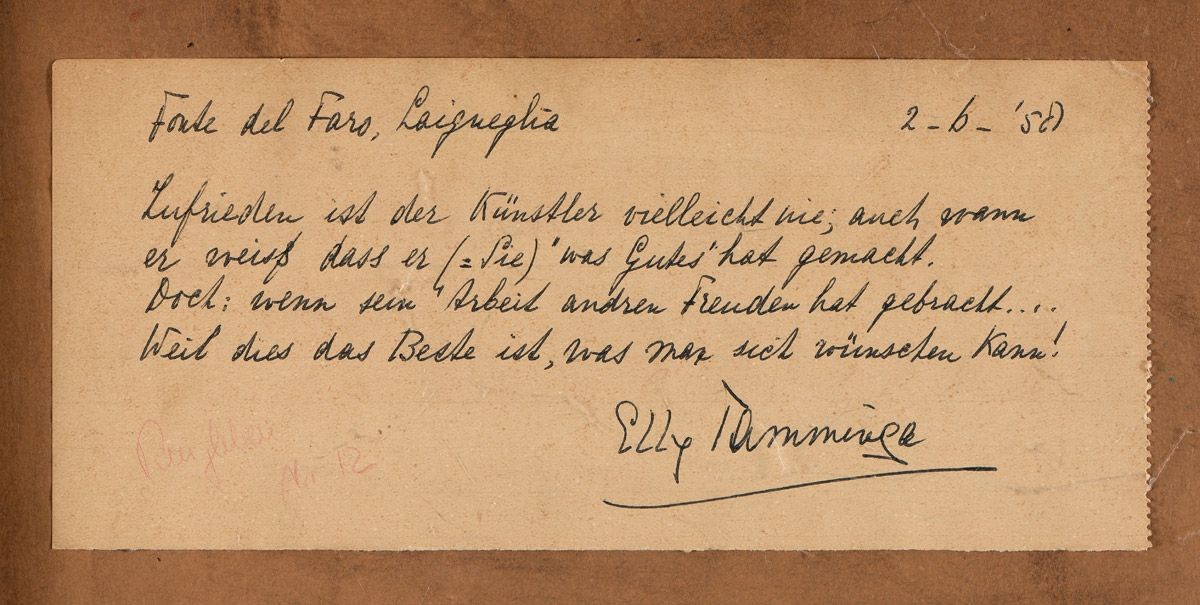 Fonte del Faro, Laigueglia 2-6-'58
Zufrieden ist der Künstler vielleicht nie; auch wann
er weiß dass er (=Sie) "was Gutes" hat gemacht.
Doch: wenn sein Arbeit andren Freuden hat gebracht....
Weil dies das Beste ist, was man sich wünschen kann!
Elly Tamminga
Nr 12